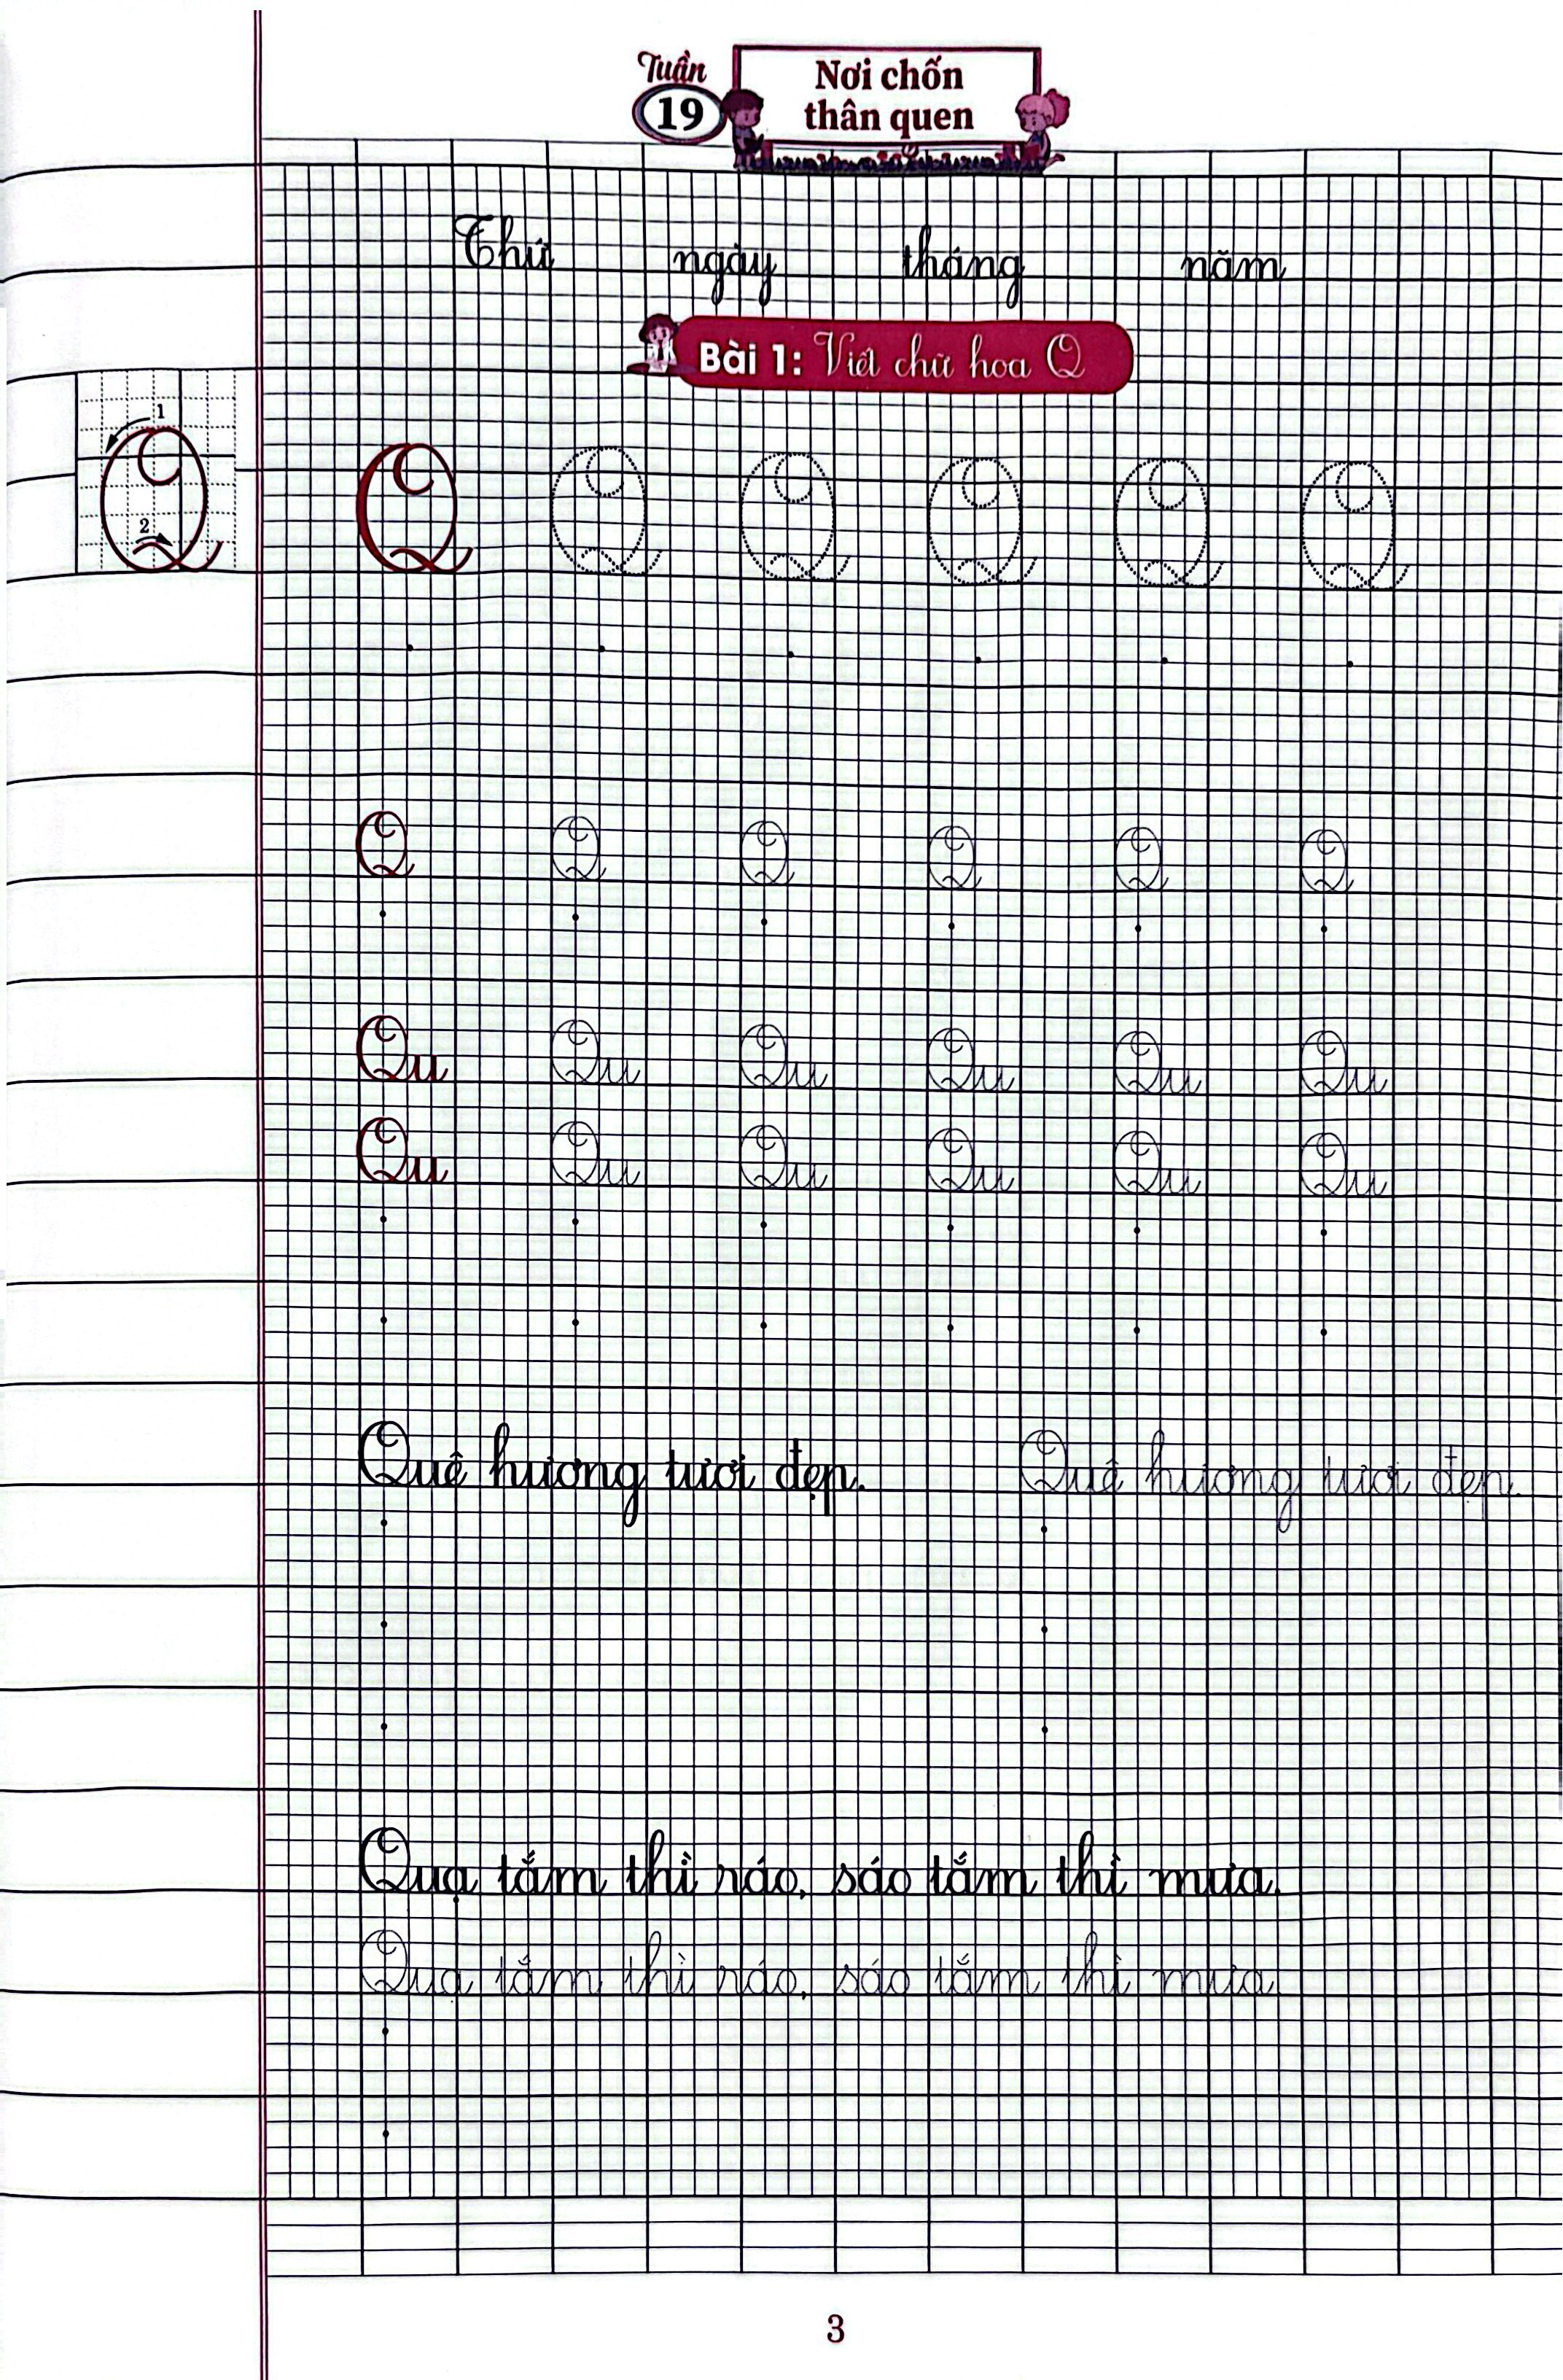 Tuần
19
Nơi chốn
thân quen
Thứ ngày tháng năm
Bài 1: Viết chữ hoa Q
1
2
Q Q Q Q Q Q
Q Q Q Q Q Q
Qu Qu Qu Qu Qu Qu
Qu Qu Qu Qu Qu Qu
Quê hương tươi đẹp. Quê hương tươi đẹp.
Quạ tắm thì ráo, sáo tắm thì mưa.
Quạ tắm thì ráo, sáo tắm thì mưa.
3